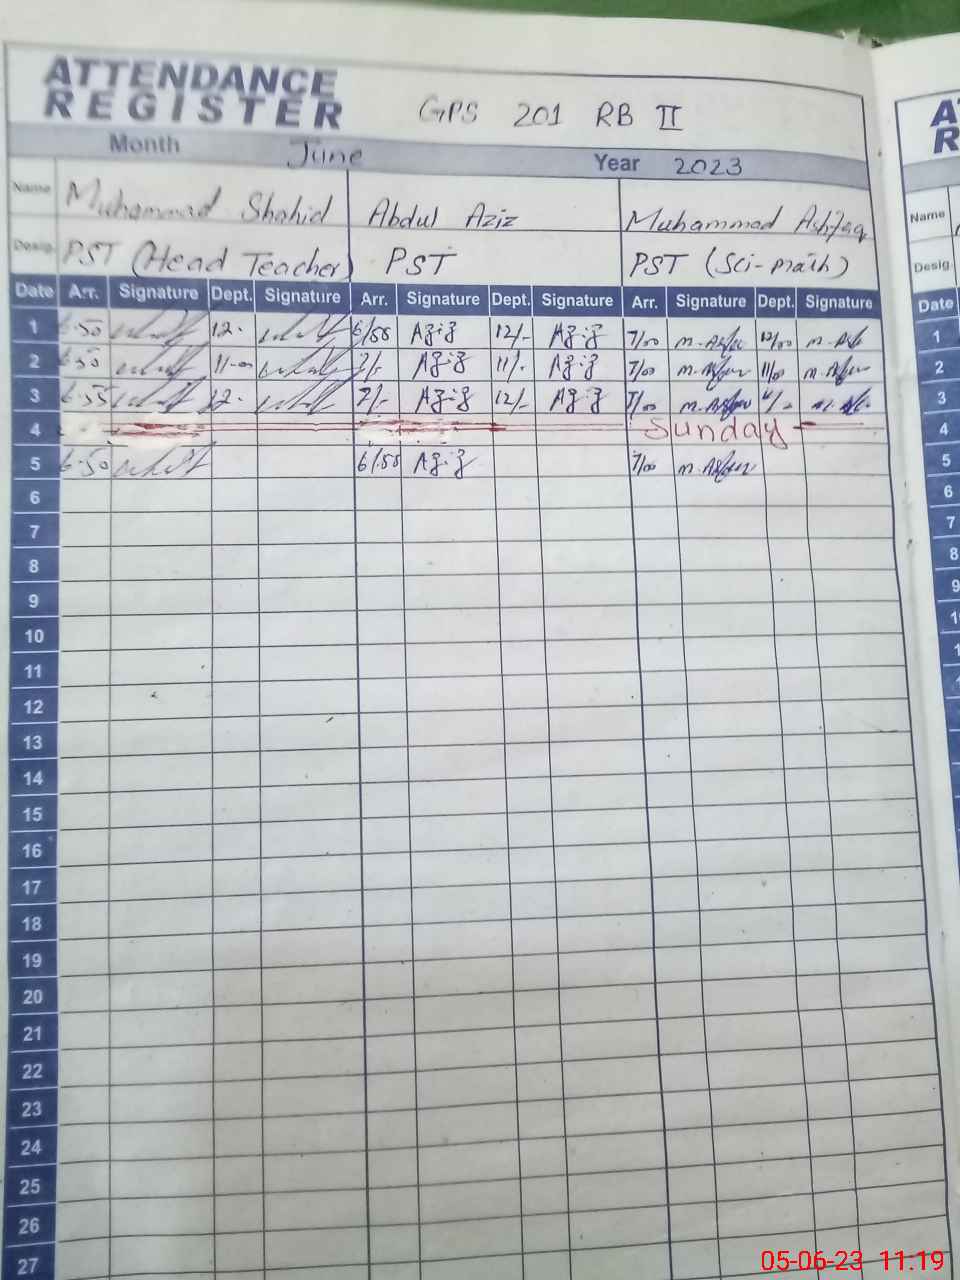 ATTENDANCE
REGISTER
GPS 201 RB II
Month June Year 2023
Name Muhammad Shahid Abdul Aziz Muhammad Ashfaq
Desig. PST (Head Teacher) PST PST (Sci-math)
Date Arr. Signature Dept. Signature Arr. Signature Dept. Signature Arr. Signature Dept. Signature
1 6.50 12. 6/55 Aziz 12/- Aziz 7/00 12/00
2 6.50 11-00 7/- Aziz 11/- Aziz 7/00 11/00
3 6.55 12. 7/- Aziz 12/- Aziz 7/00
4 Sunday
5 6.50 6/55 Aziz 7/00
6
7
8
9
10
11
12
13
14
15
16
17
18
19
20
21
22
23
24
25
26
27
Name
Desig.
Date
1
2
3
4
5
6
7
8
9
05-06-23 11:19